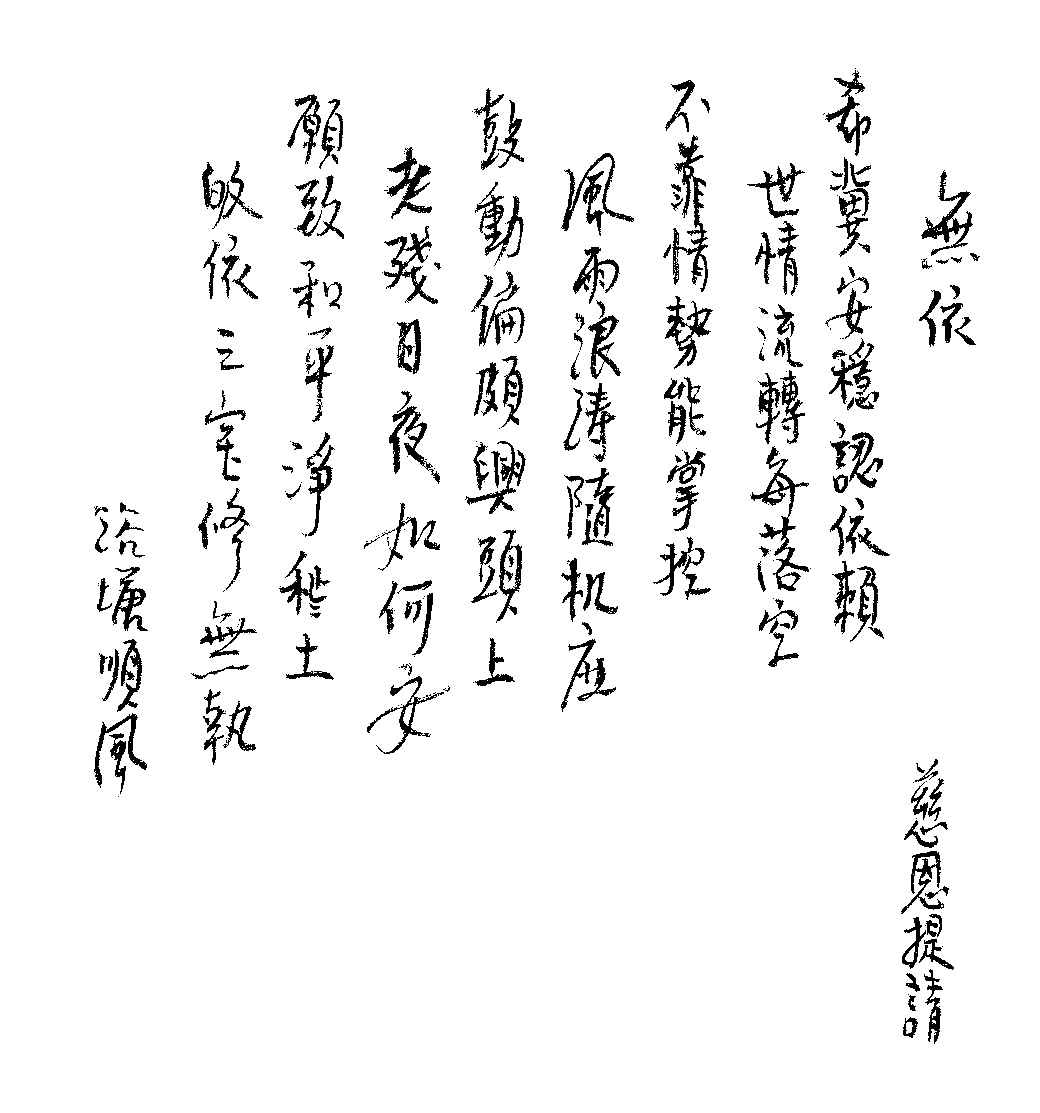 無依
慈恩提請
希冀安穩認依賴
世情流轉每落空
不靠情勢能掌控
風雨浪涛隨机應
鼓動偏頗興頭上
老殘日夜如何安
願致和平淨秽土
皈依三宝修無執
塘順風